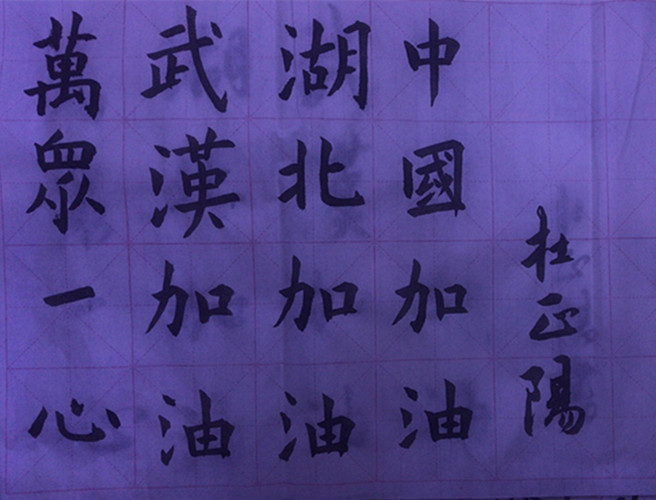 萬衆一心
武漢加油
湖北加油
中國加油
杜正陽